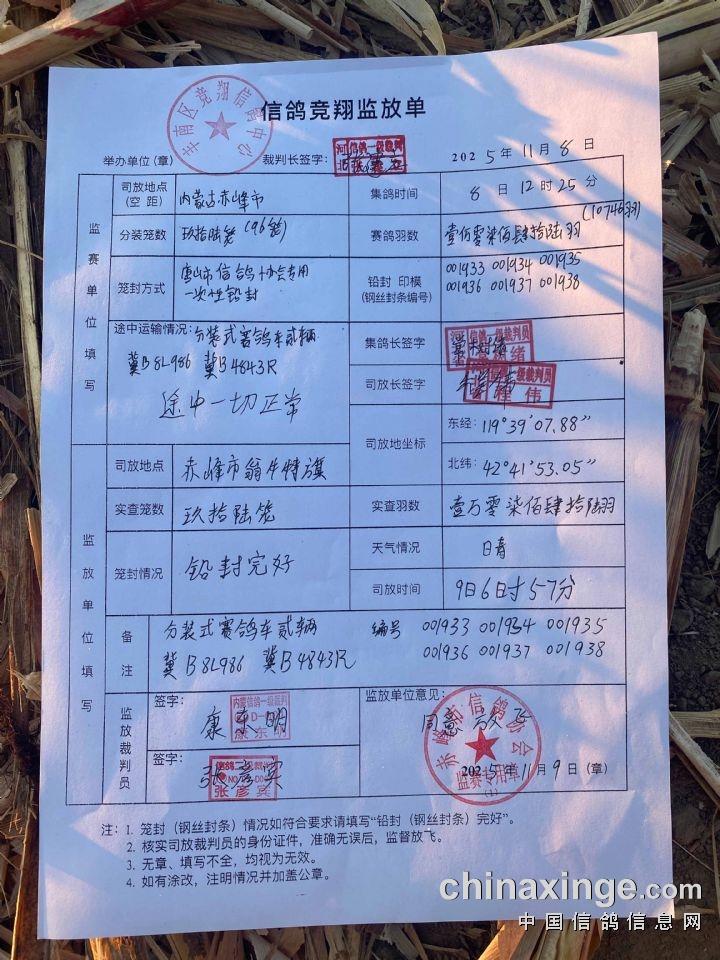 信鸽竞翔监放单
丰南区竞翔信鸽中心
举办单位(章) 裁判长签字: 2025年11月8日
监赛单位填写
司放地点(空距) 内蒙古赤峰市 集鸽时间 8日12时25分
分装笼数 玖拾陆笼(96笼) 赛鸽羽数 壹佰零柒佰肆拾陆羽(10746羽)
笼封方式 唐山市信鸽协会专用 一次性铅封 铅封 印模(钢丝封条编号) 001933 001934 001935
001936 001937 001938
途中运输情况: 分装式赛鸽车贰辆
冀B8L986 冀B4843R
途中一切正常
集鸽长签字
司放长签字
司放地坐标 东经: 119°39′07.88″
北纬: 42°41′53.05″
监放单位填写
司放地点 赤峰市翁牛特旗
实查笼数 玖拾陆笼 实查羽数 壹万零柒佰肆拾陆羽
笼封情况 铅封完好 天气情况 日青
司放时间 9日6日寸57分
备注 分装式赛鸽车贰辆 编号 001933 001934 001935
冀B8L986 冀B4843R 001936 001937 001938
监放裁判员
签字: 康东明
签字: 张彦宾
张彦宾
监放单位意见:
同意放飞
赤峰市信鸽协会
监赛专用章
(1)
2025年11月9日(章)
注: 1. 笼封(钢丝封条)情况如符合要求请填写“铅封(钢丝封条)完好”。
2. 核实司放裁判员的身份证件,准确无误后,监督放飞。
3. 无章、填写不全,均视为无效。
4. 如有涂改,注明情况并加盖公章。
chinaxinge.com
中国信鸽信息网